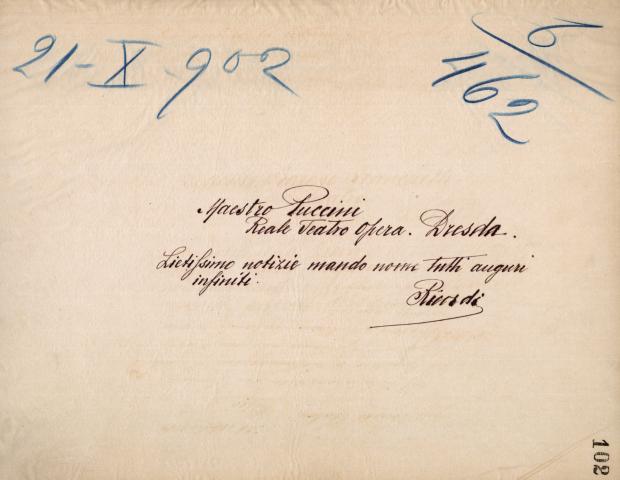 21-X-902
6/462
Maestro Puccini
Reale Teatro Opera. Dresda.
Lietissimo notizie mando nome tutti auguri
infiniti.
Ricordi
102